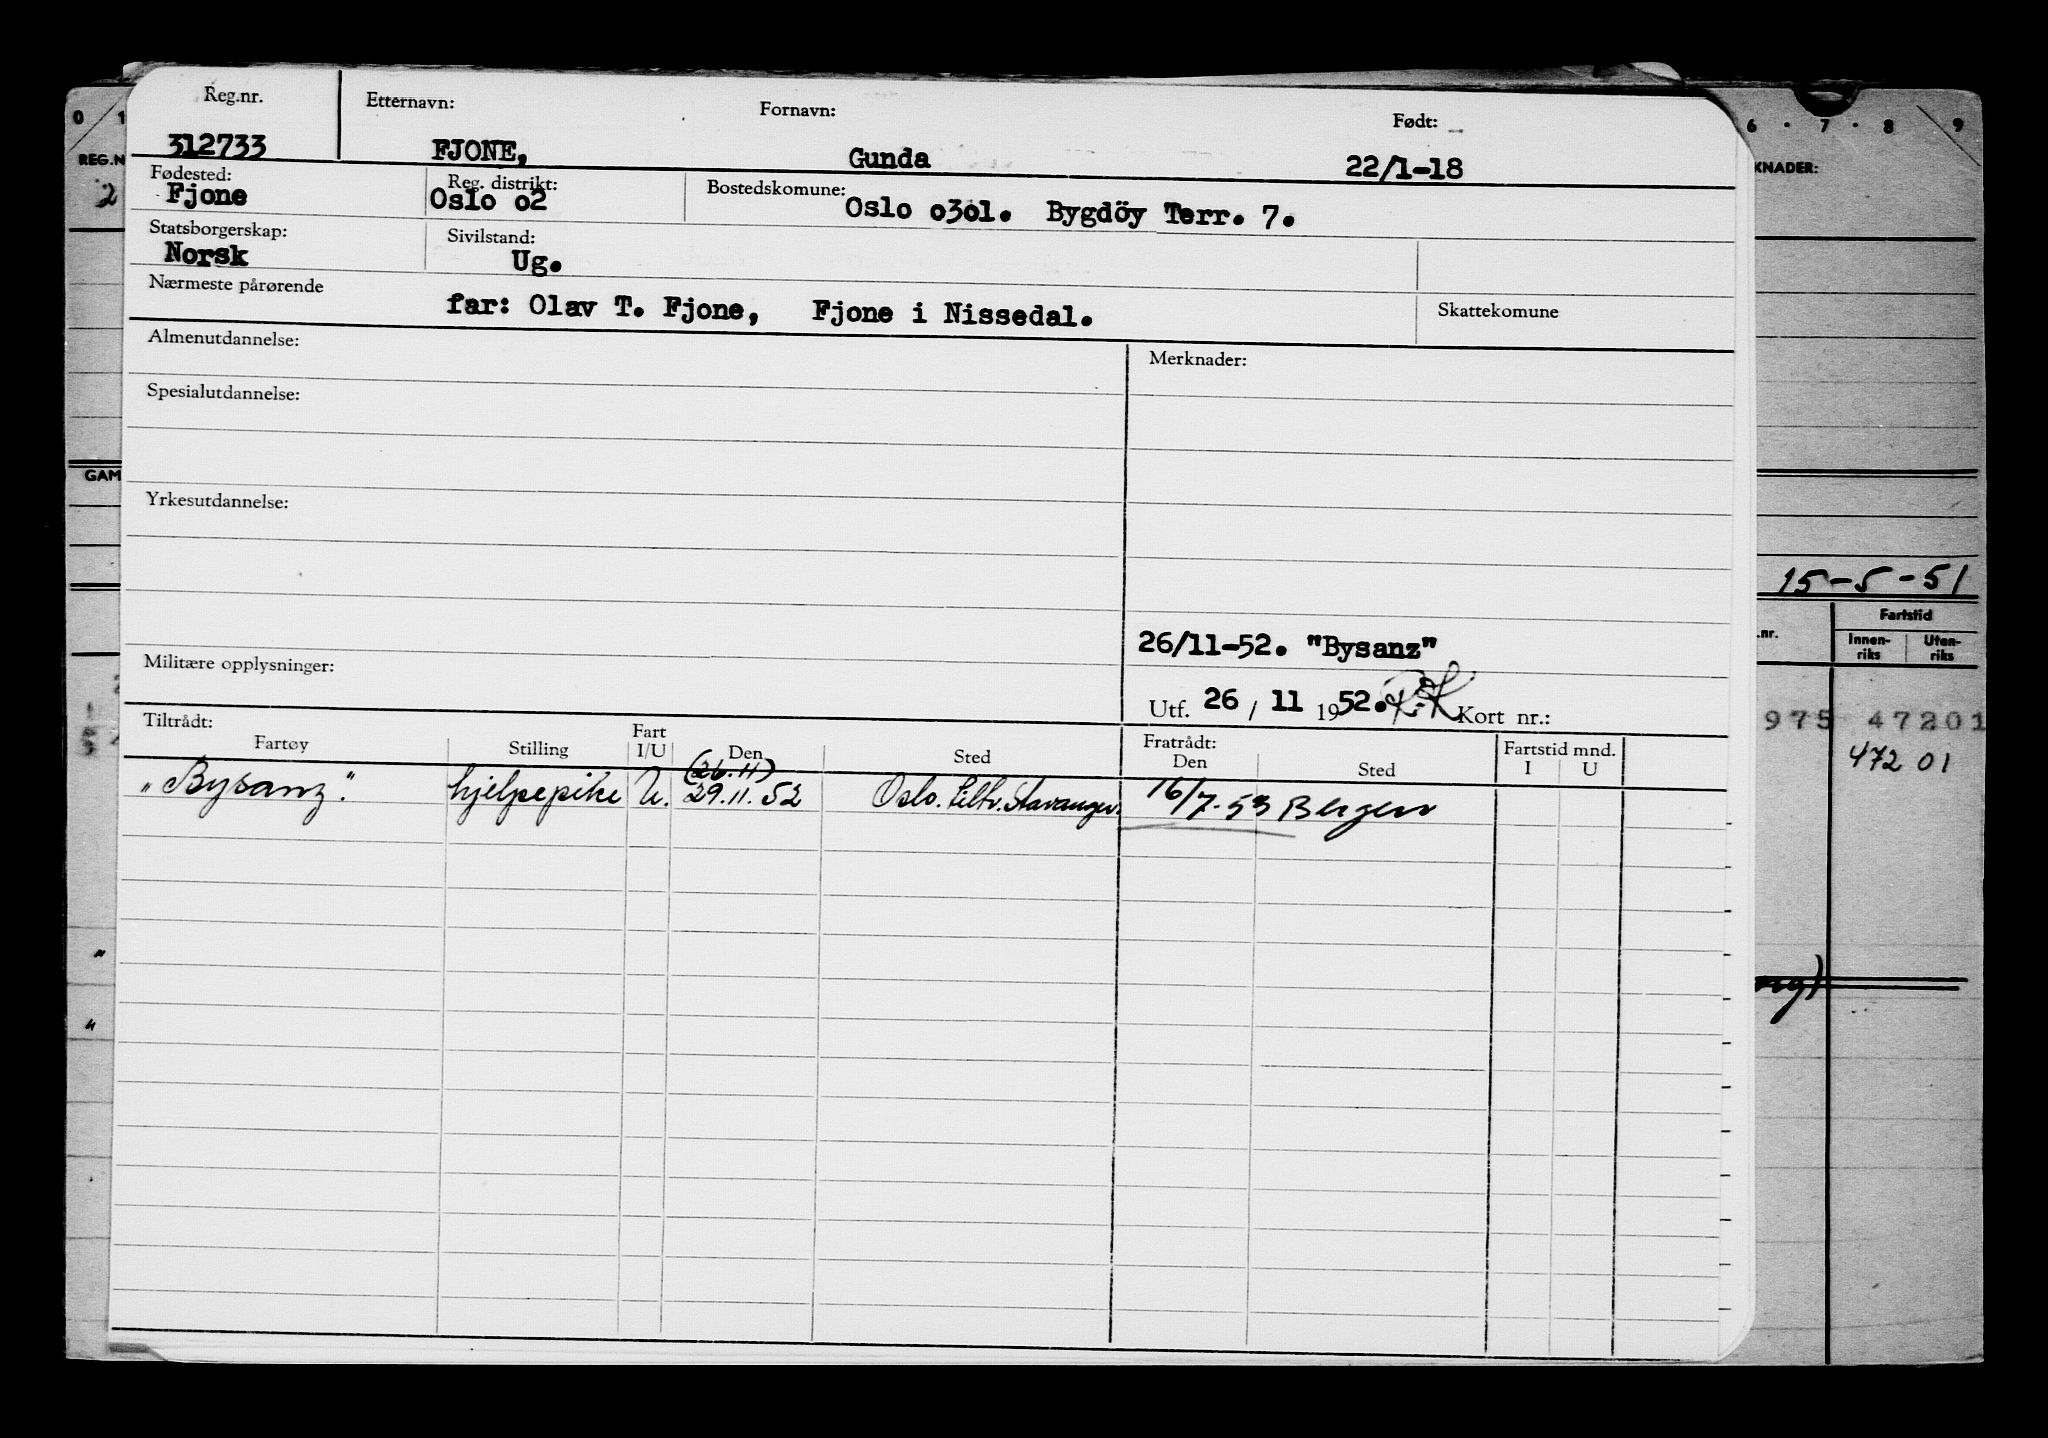 Reg.nr. Etternavn: Fornavn: Født:
312733 FJONE, Gunda 22/1-18
Fødested: Reg. distrikt: Bostedskomune:
Fjone Oslo o2 Oslo o3ol. Bygdöy Terr. 7.
Statsborgerskap: Sivilstand:
Norsk Ug.
Nærmeste pårørende
far: Olav T. Fjone, Fjone i Nissedal. Skattekomune
Almenutdannelse: Merknader:
Spesialutdannelse:
Yrkesutdannelse:
26/11-52. "Bysanz"
Militære opplysninger:
Utf. 26 / 11 1952. Kort nr.:
Tiltrådt: Fratrådt:
Fartøy Stilling Fart I/U Den Sted Den Sted Fartstid mnd. I U
(26.11)
"Bysanz". hjelpepike U. 29.11.52 Oslo. tiltr. Stavanger. 16/7-53 Bergen
0 1
REG.N
2
GAM
6 . 7 . 8 9
KNADER:
15-5-51
.nr. Fartstid
Innen-riks Uten-riks
975 47201
472 01